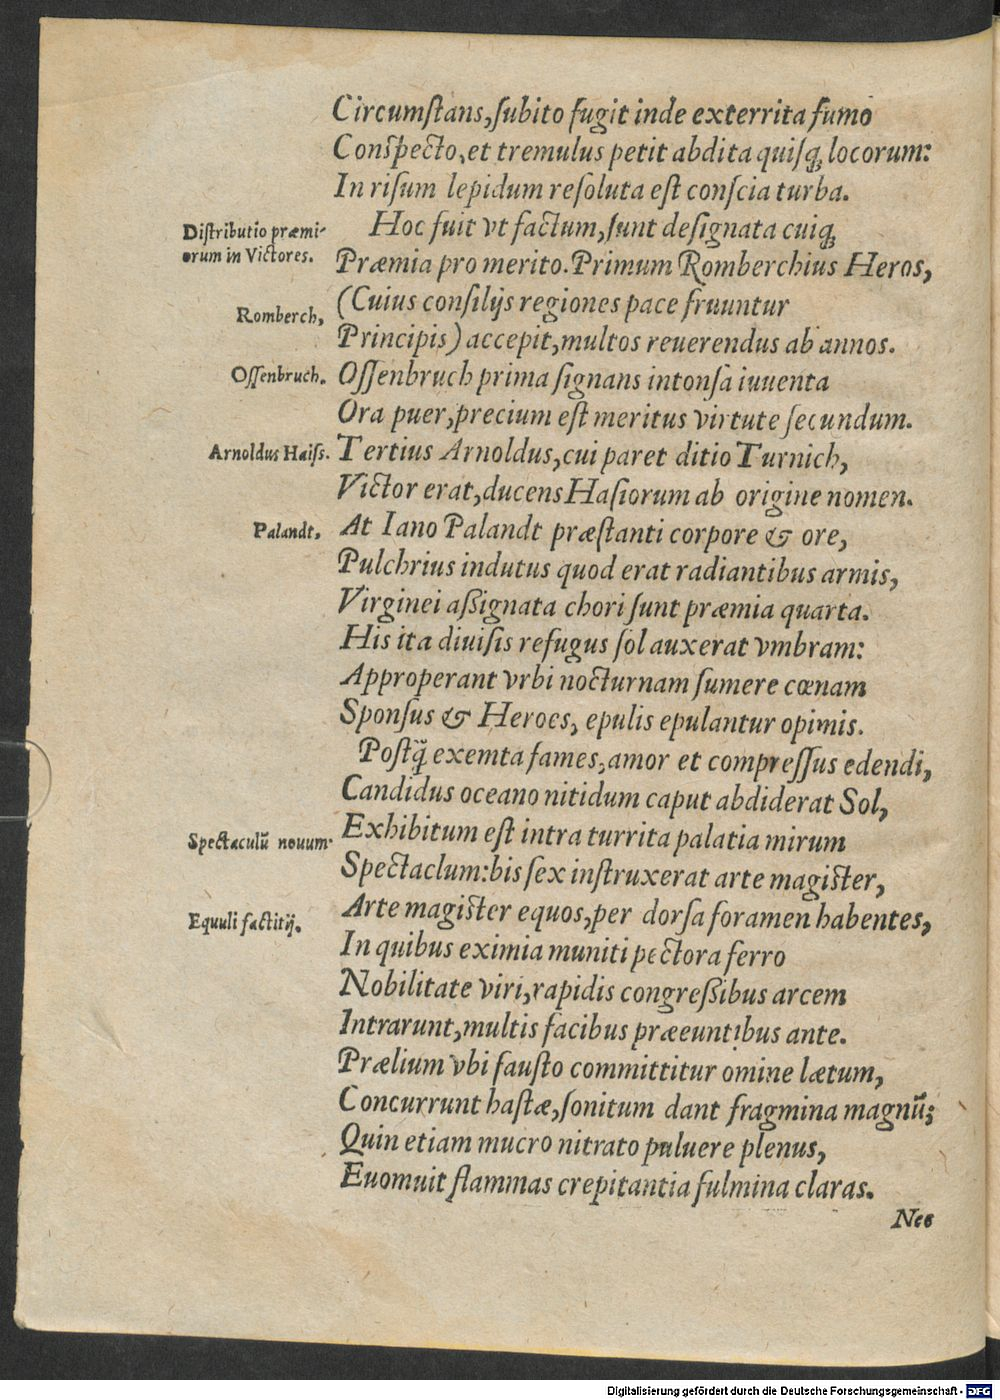 Circumſtans, ſubito fugit inde exterrita fumo
Conſpecto, et tremulus petit abdita quiſq́; locorum:
In riſum lepidum reſoluta eſt conſcia turba.
Hoc fuit vt factum, ſunt deſignata cuiq́;
Distributio præmi-
orum in Victores.
Præmia pro merito. Primum Romberchius Heros,
(Cuius conſilijs regiones pace fruuntur
Romberch,
Principis) accepit, multos reuerendus ab annos.
Oſſenbruch.
Oſſenbruch prima ſignans intonſa iuuenta
Ora puer, precium eſt meritus virtute ſecundum.
Arnoldus Haiſs.
Tertius Arnoldus, cui paret ditio Turnich,
Victor erat, ducens Haſiorum ab origine nomen.
Palandt,
At Iano Palandt præſtanti corpore & ore,
Pulchrius indutus quod erat radiantibus armis,
Virginei aſsignata chori ſunt præmia quarta.
His ita diuiſis refugus ſol auxerat vmbram:
Approperant vrbi nocturnam ſumere cœnam
Sponſus & Heroes, epulis epulantur opimis.
Poſtq̃ exemta fames, amor et compreſſus edendi,
Candidus oceano nitidum caput abdiderat Sol,
Spectaculũ nouum.
Exhibitum eſt intra turrita palatia mirum
Spectaclum: bis ſex inſtruxerat arte magiſter,
Equuli factitij.
Arte magiſter equos, per dorſa foramen habentes,
In quibus eximia muniti pectora ferro
Nobilitate viri, rapidis congreſsibus arcem
Intrarunt, multis facibus præeuntibus ante.
Prælium vbi fauſto committitur omine lætum,
Concurrunt haſtæ, ſonitum dant fragmina magnũ;
Quin etiam mucro nitrato puluere plenus,
Euomuit flammas crepitantia fulmina claras.
Nec
Digitalisierung gefördert durch die Deutsche Forschungsgemeinschaft - DFG